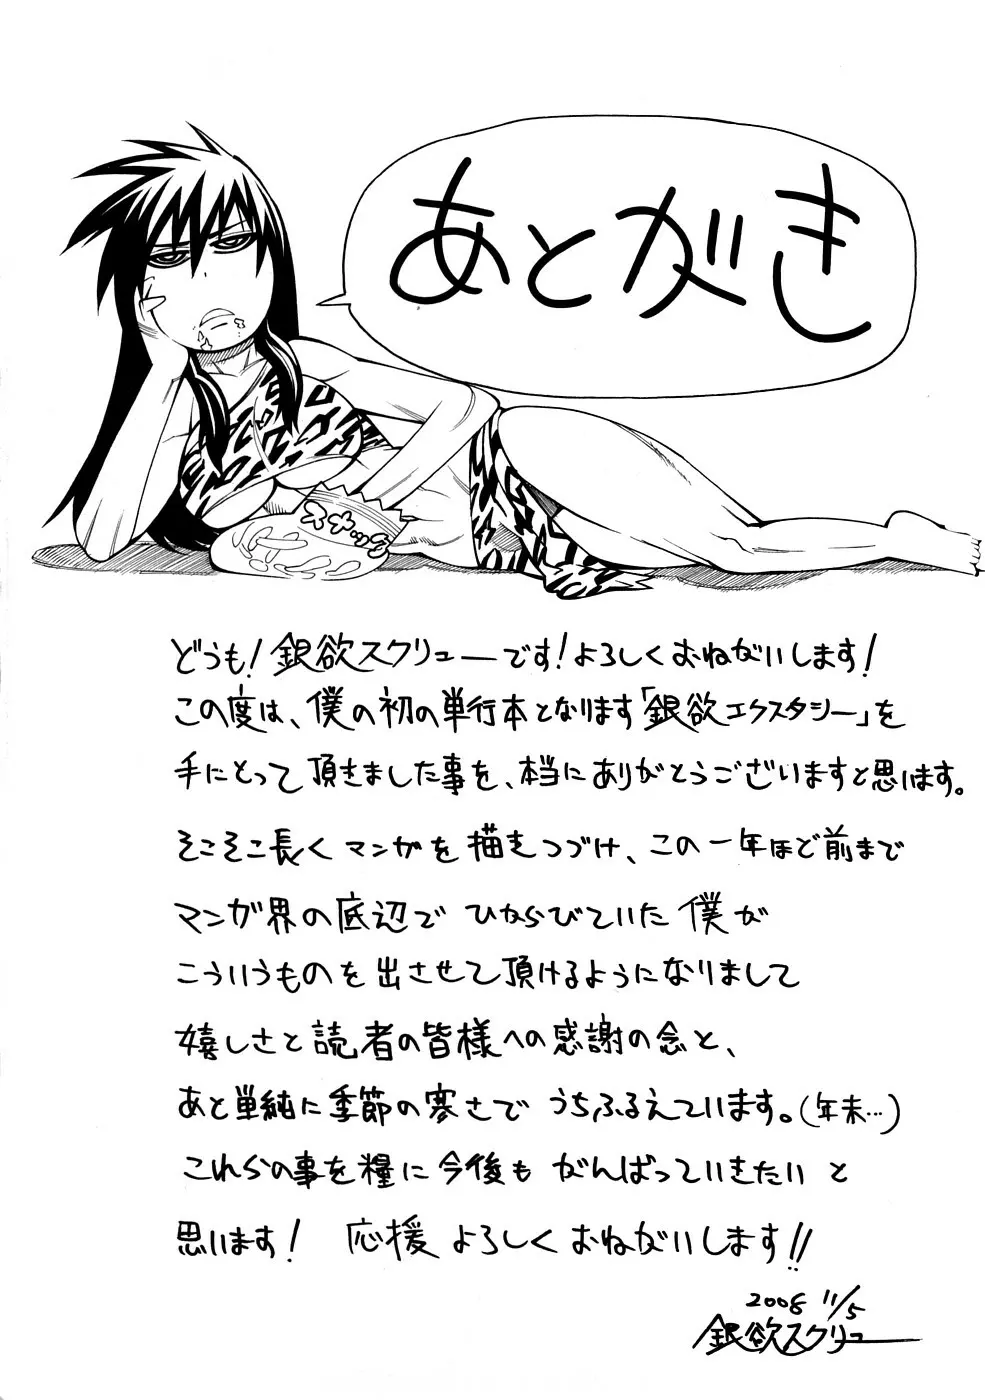 あとがき
スナック
どうも!銀欲スクリューです!よろしくおねがいします!
この度は、僕の初の単行本となります「銀欲エクスタシー」を
手にとって頂きました事を、本当にありがとうございますと思います。
そこそこ長くマンガを描きつづけ、この一年ほど前まで
マンガ界の底辺でひからびていた僕が
こういうものを出させて頂けるようになりまして
嬉しさと読者の皆様への感謝の念と、
あと単純に季節の寒さでうちふるえています。(年末…)
これらの事を糧に今後もがんばっていきたいと
思います! 応援よろしくおねがいします!!
2008 11/5
銀欲スクリュー